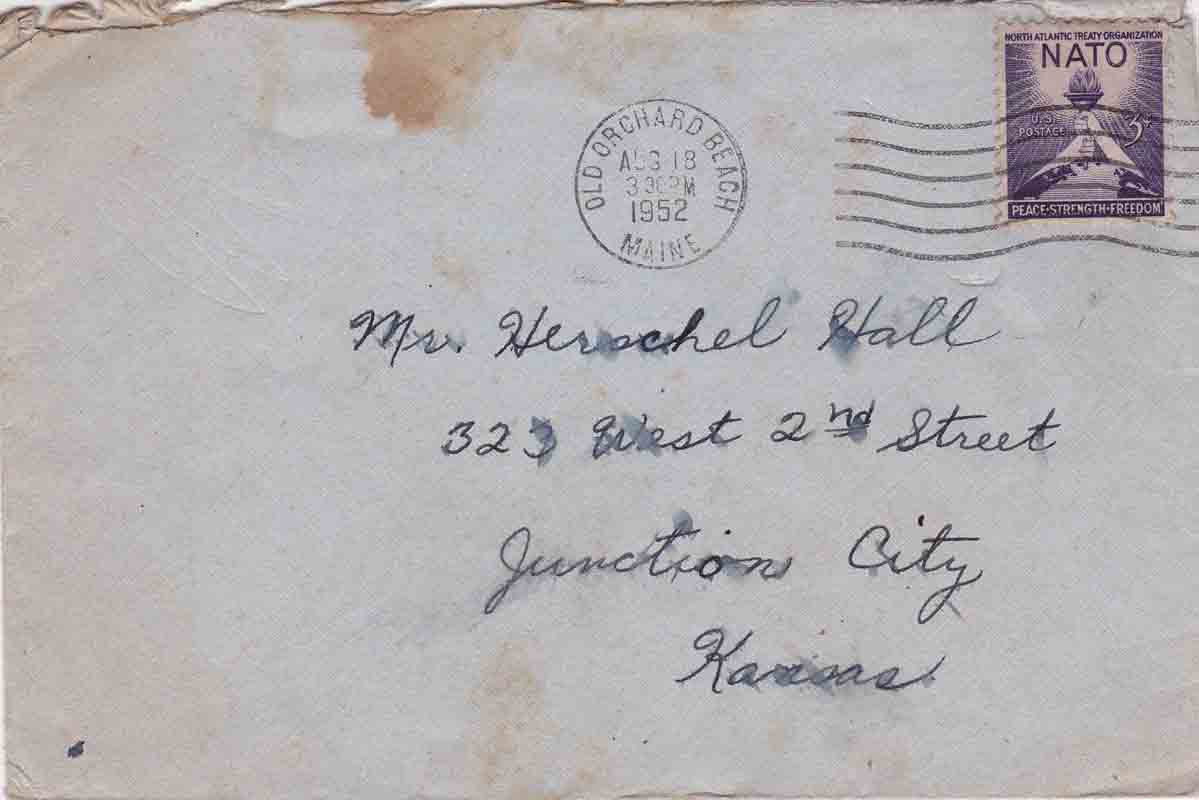 NORTH ATLANTIC TREATY ORGANIZATION
NATO
U.S. POSTAGE
3¢
PEACE·STRENGTH·FREEDOM
OLD ORCHARD BEACH
AUG 18
PM
1952
MAINE
Mr. Herschel Hall
323 West 2nd Street
Junction City
Kansas